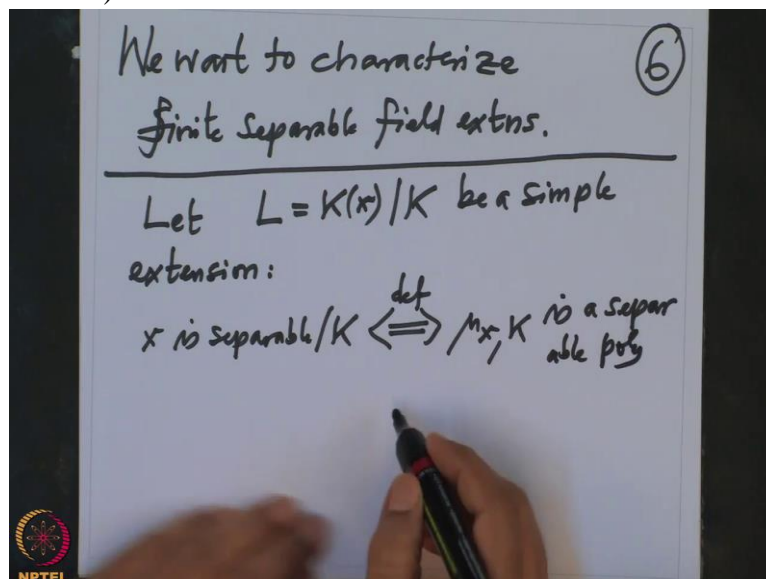 We want to characterize
⑥
finite separable field extns.
Let L = K(x)/K be a simple
extension:
def
x is separable/K <=> μx,K is a separ
able poly
NPTEL